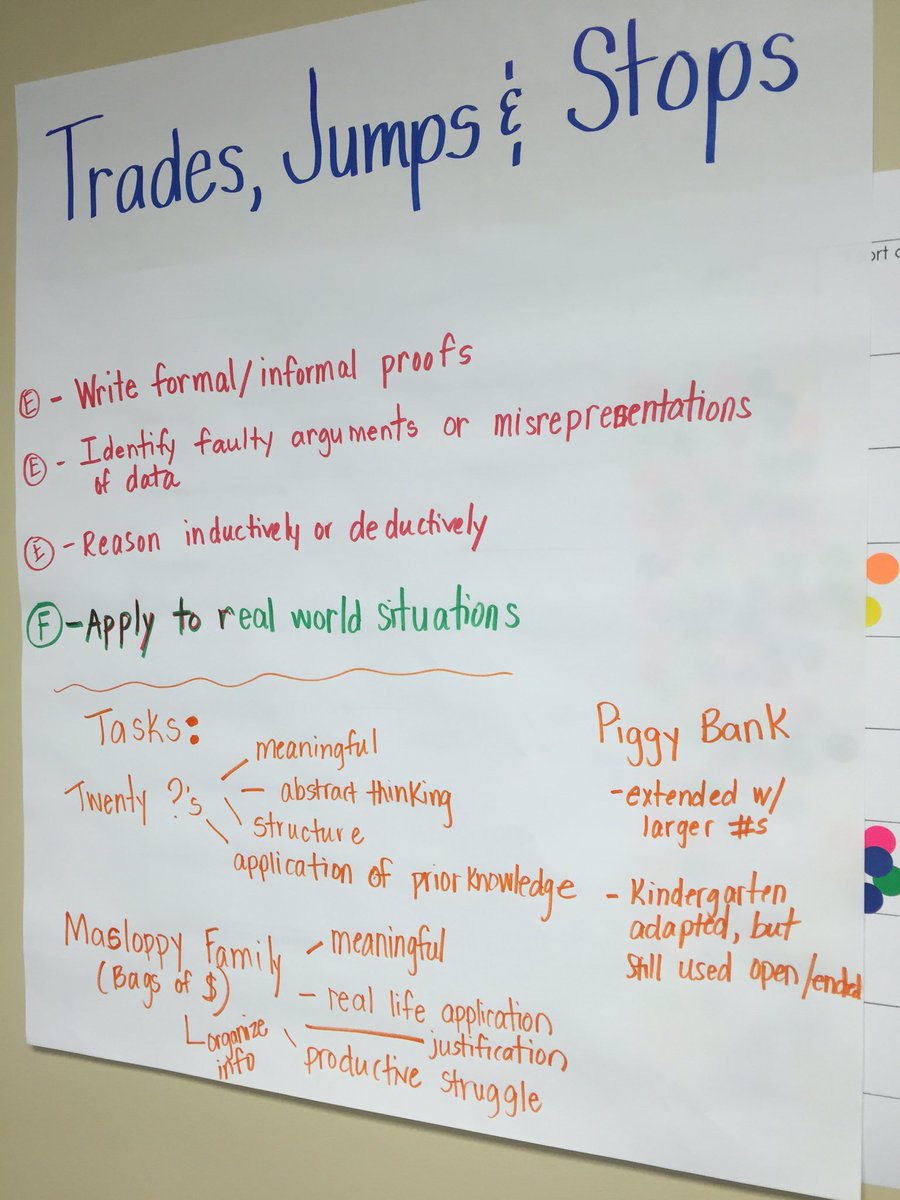 Trades, Jumps & Stops
Ⓔ - Write formal/informal proofs
Ⓔ - Identify faulty arguments or misrepresentations
of data
Ⓔ - Reason inductively or deductively
Ⓕ - Apply to real world situations
Tasks:
Twenty ?'s
meaningful
- abstract thinking
structure
application of prior knowledge
Masloppy Family
(Bags of $)
organize
info
meaningful
- real life application
justification
productive struggle
Piggy Bank
- extended w/
larger #s
- Kindergarten
adapted, but
still used open/ended
ort